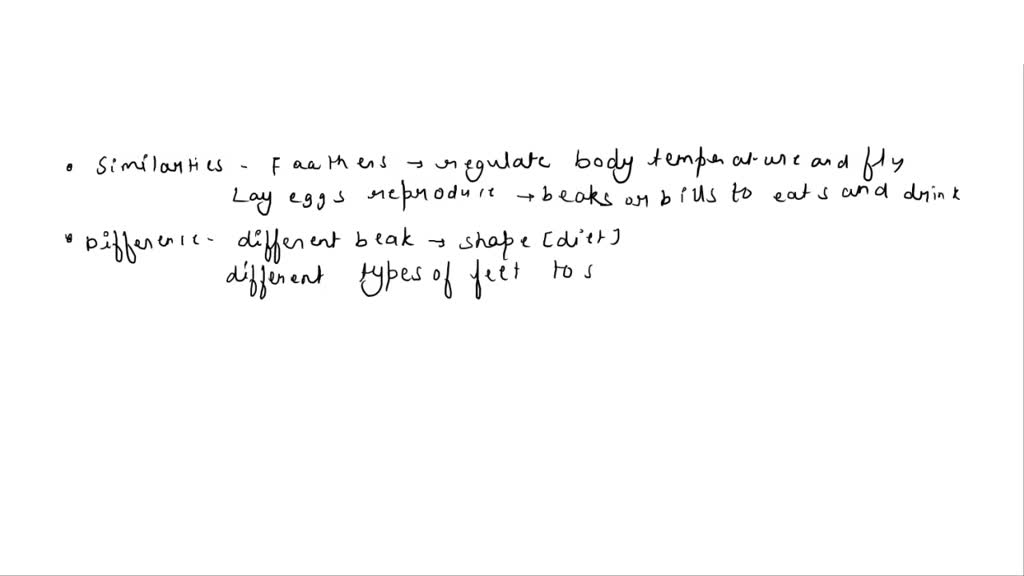 • Similarities - Faathers → regulate body temperature and fly
Lay eggs reproduce → beaks or bills to eats and drink
• Difference - different beak → shape [diet]
different types of feet to s